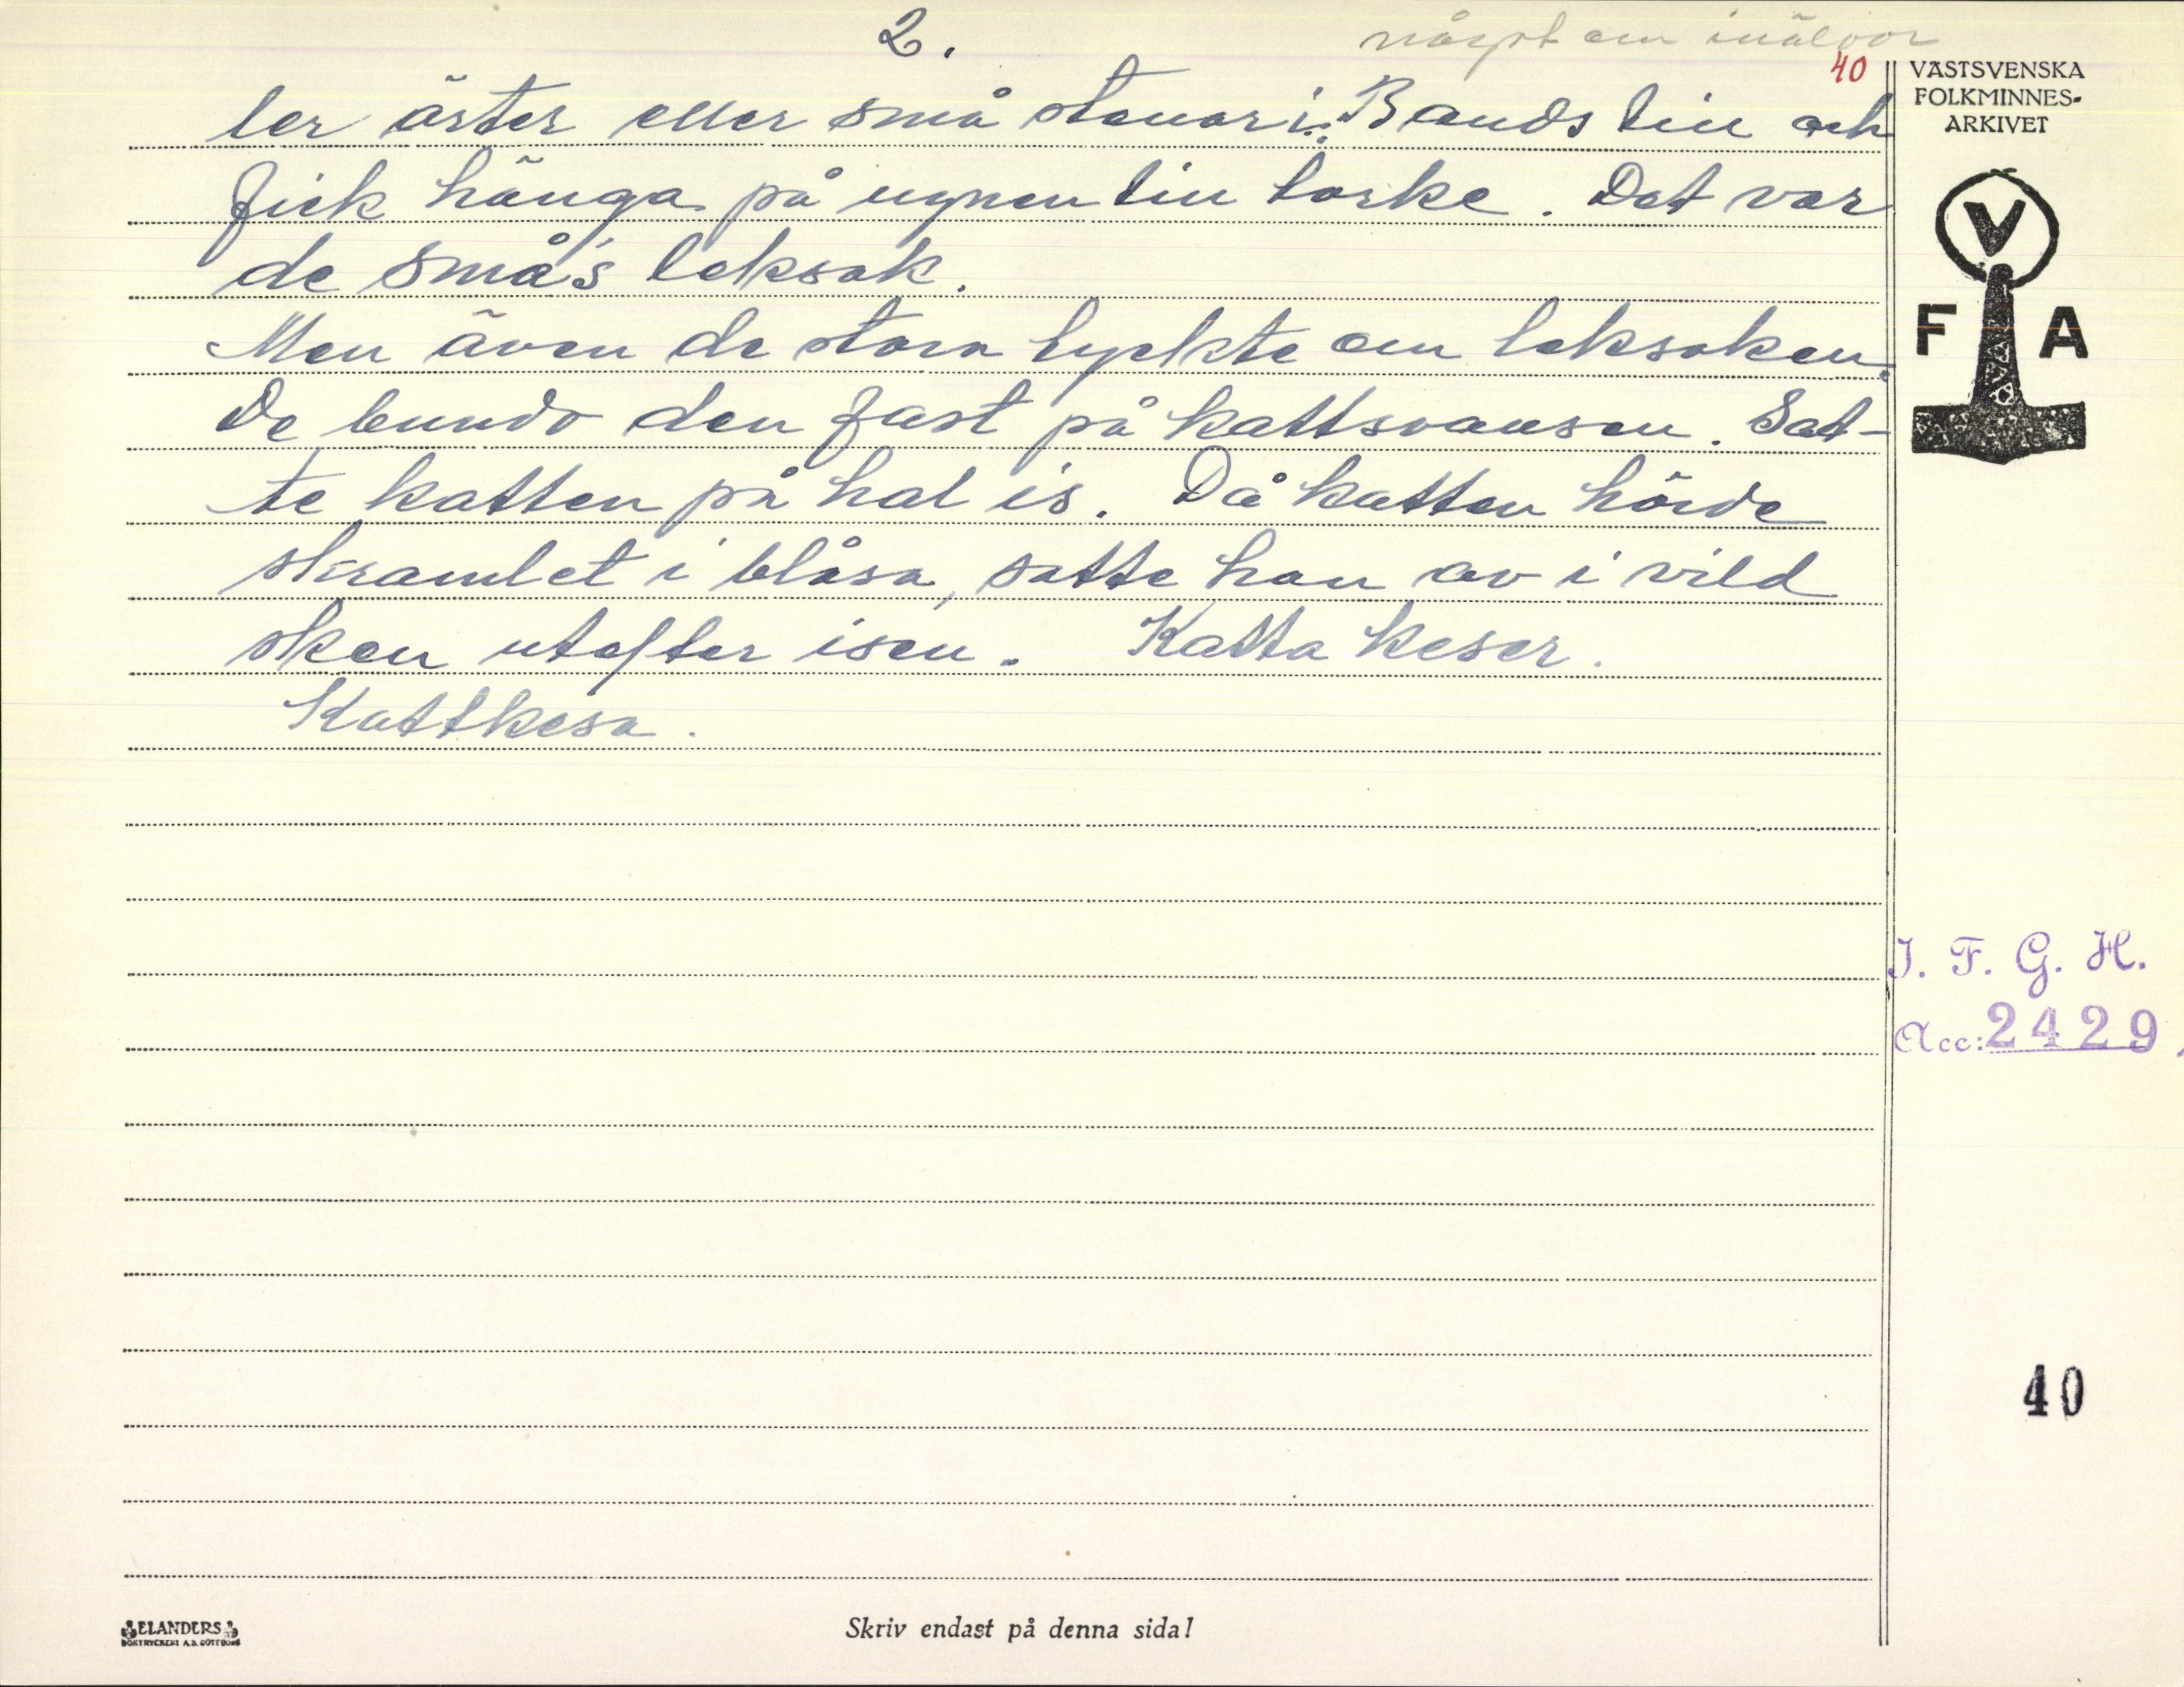 2.
något om inälvor
40
ler ärter eller små stenar i. Bands till och
fick hänga på ugnen till torke. Det var
de små's leksak.
Men även de stora tyckte om leksaken.
De bundo den fast på kattsvansen. Sat-
te katten på hal is. Då katten hörde
skramlet i blåsa, satte han av i vild
sken utefter isen. Katta keser.
Kattkesa.
VÄSTSVENSKA
FOLKMINNES-
ARKIVET
V
F A
I. F. G. H.
Acc: 2429
40
ELANDERS
BOKTRYCKERI A.B. GÖTEBORG
Skriv endast på denna sida!